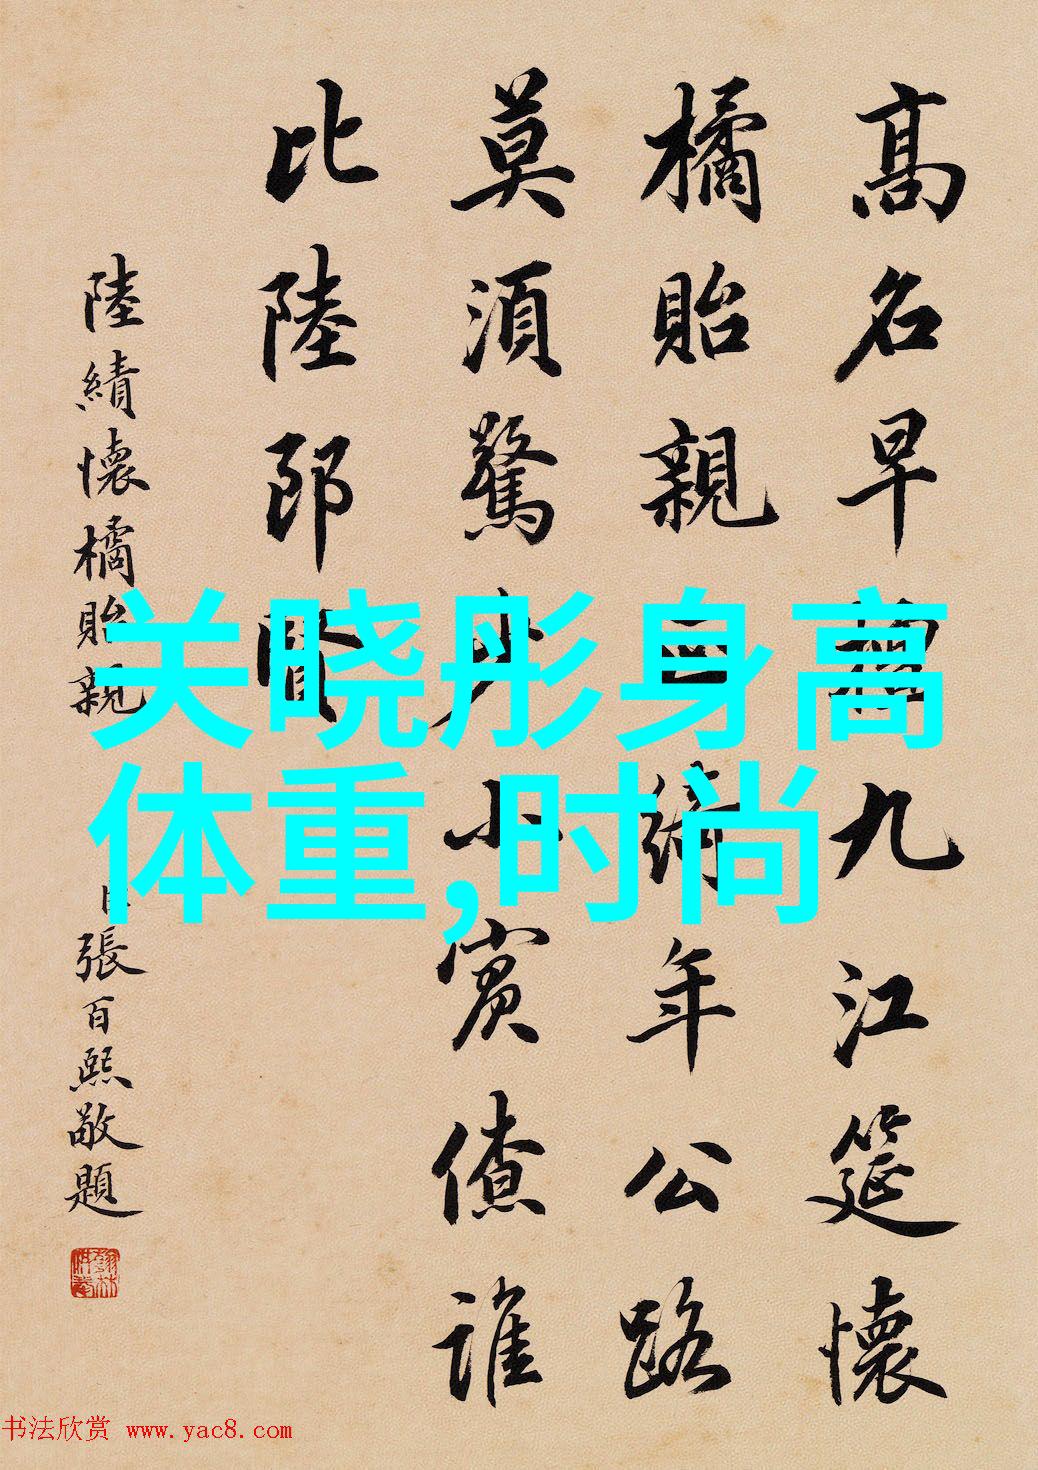 高名早九江筵懷
橘貽親綺年公路
莫須驚少小賓僚誰
比陸郎賢
陸績懷橘貽親
臣張百熙敬題
关晓彤身高
体重,时尚
书法欣赏 www.yac8.com